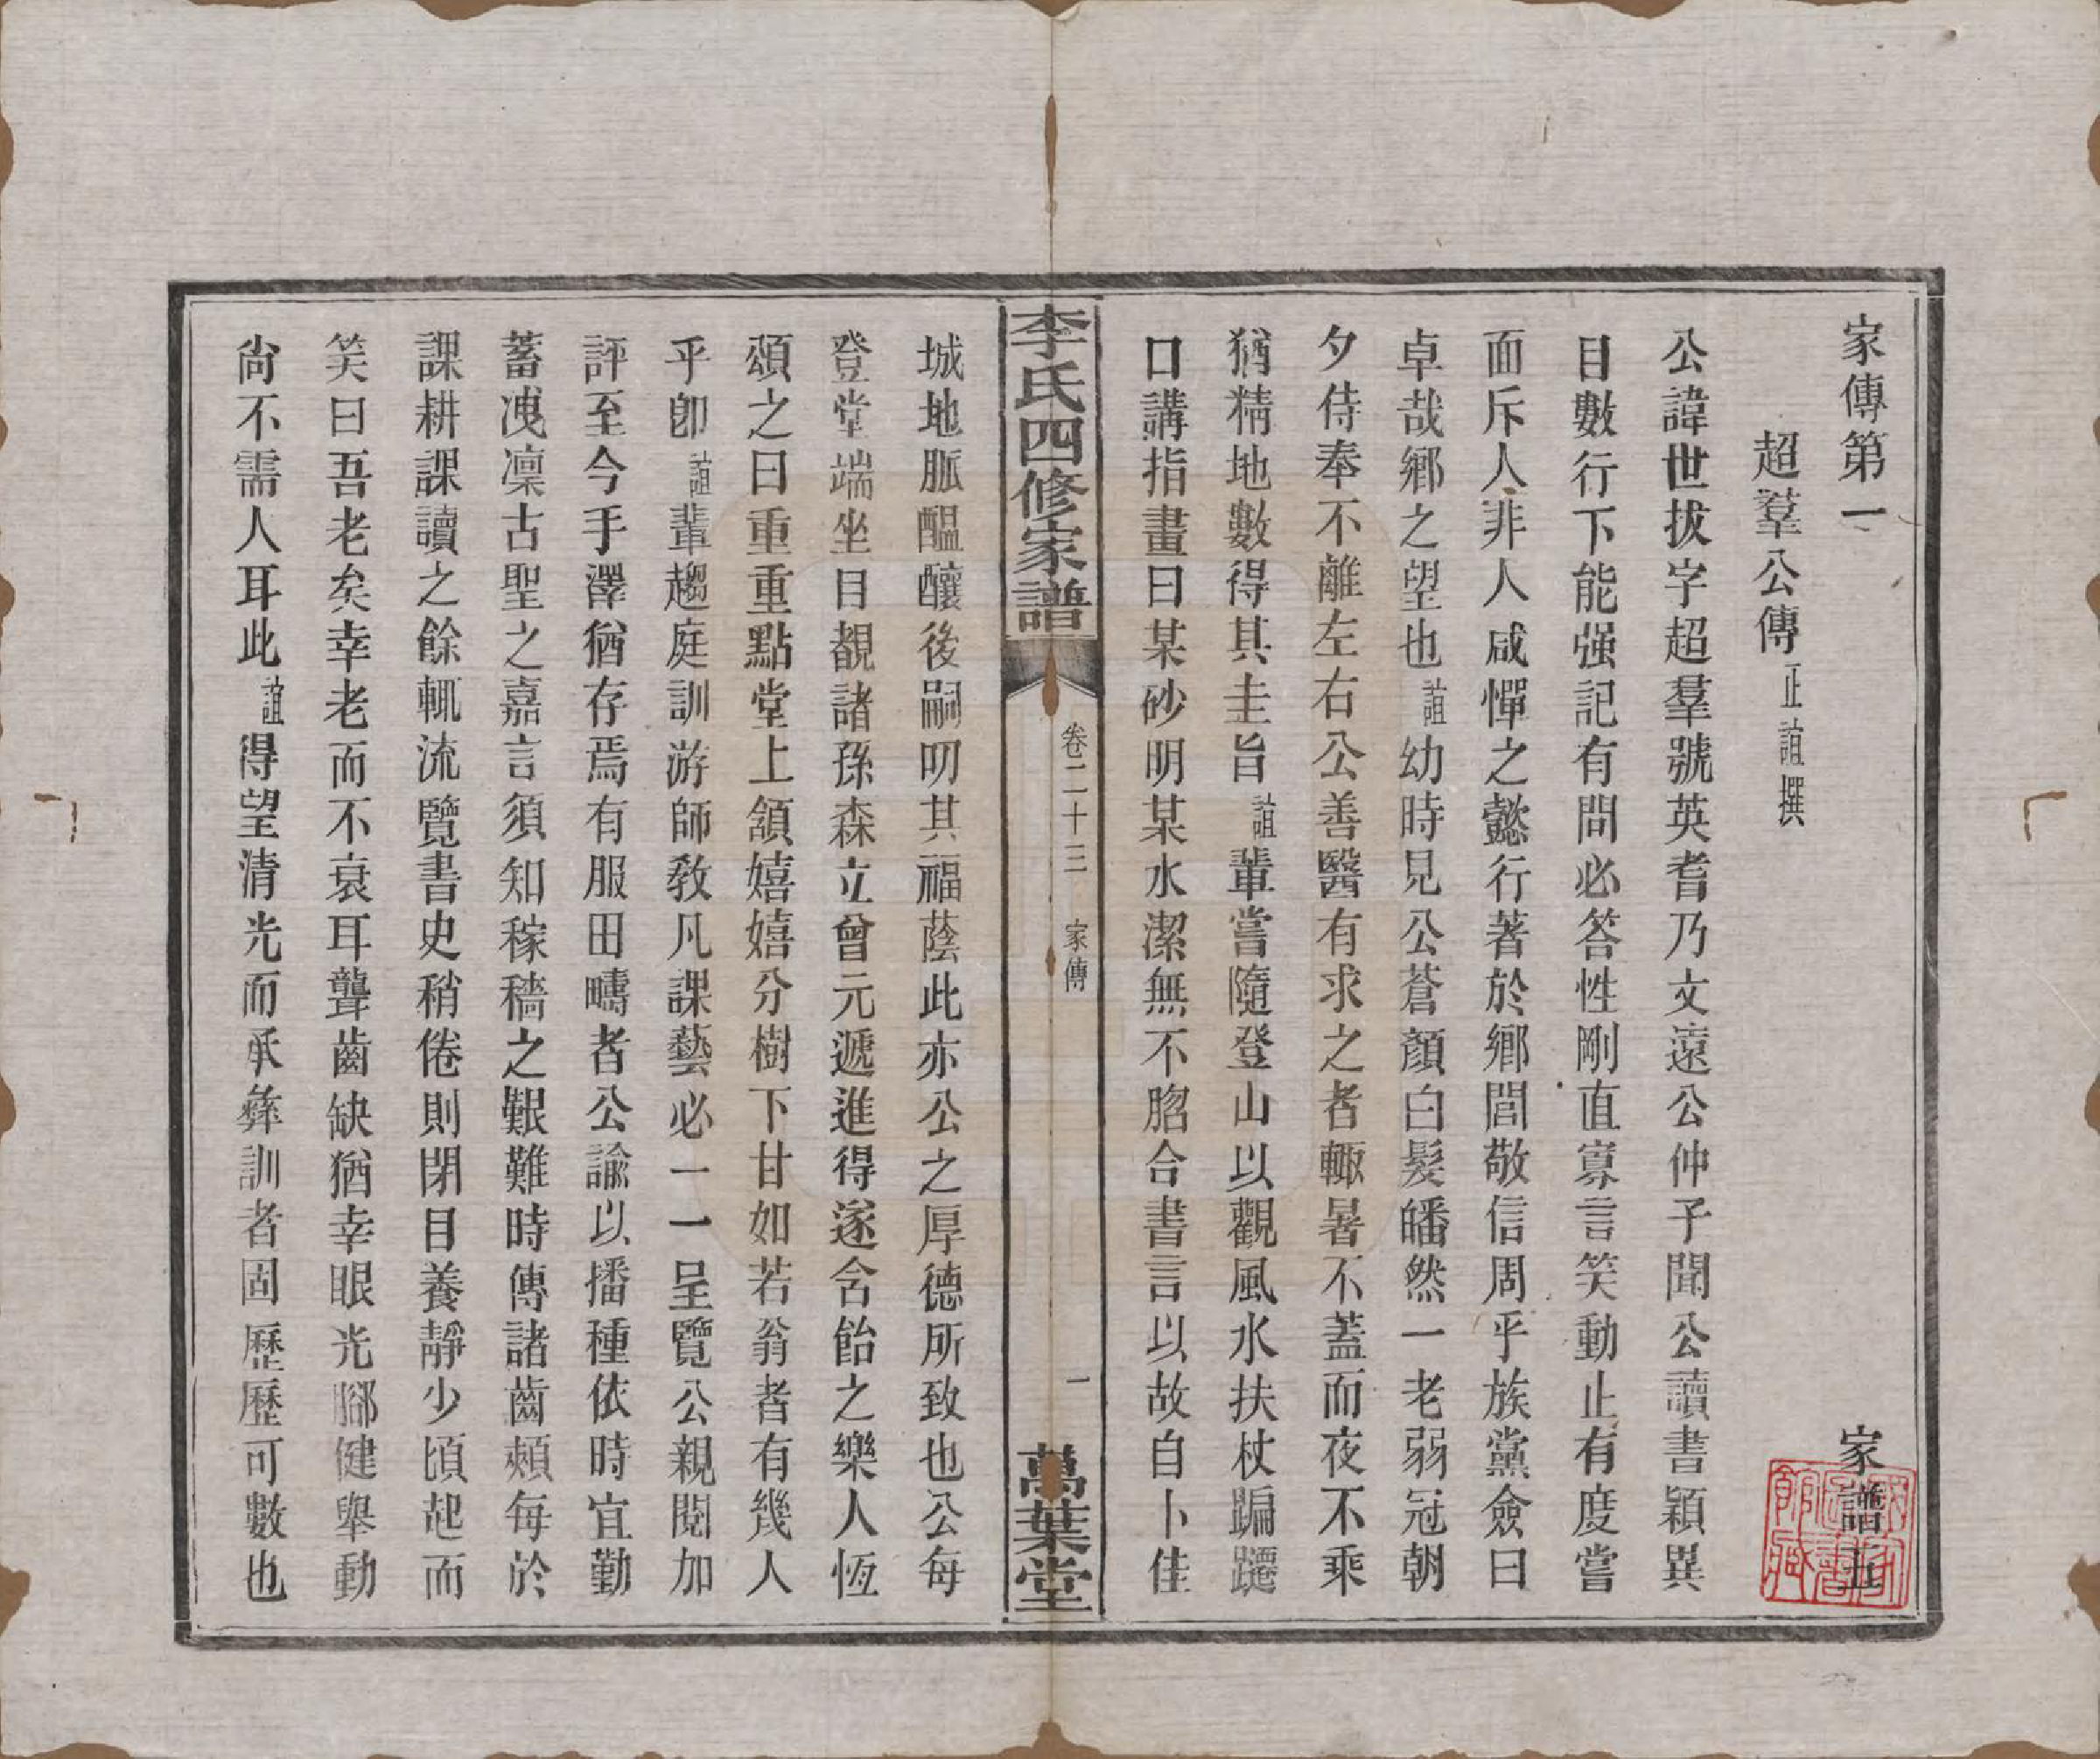 家傳第一　家譜五
超羣公傳 正誼撰
公諱世拔字超羣號英耆乃文遠公仲子聞公讀書穎異
目數行下能强記有問必答性剛直寡言笑動止有度嘗
面斥人非人咸憚之懿行著於鄉閭敬信周乎族黨僉曰
卓哉鄉之望也誼幼時見公蒼顏白髮皤然一老弱冠朝
夕侍奉不離左右公善醫有求之者輙暑不蓋而夜不乘
猶精地數得其圭旨誼輩嘗隨登山以觀風水扶杖蹁躚
口講指畫曰某砂明某水潔無不脗合書言以故自卜佳
李氏四修家譜
卷二十三　家傳
一
萬葉堂
城地脈醞釀後嗣叨其福蔭此亦公之厚德所致也公每
登堂端坐目覩諸孫森立曾元遞進得遂含飴之樂人恆
頌之曰重重點堂上頷嬉嬉分樹下甘如若翁者有幾人
乎卽誼輩趨庭訓游師敎凡課藝必一一呈覽公親閱加
評至今手澤猶存焉有服田疇者公諭以播種依時宜勤
蓄洩凜古聖之嘉言須知稼穡之艱難時傳諸齒頰每於
課耕課讀之餘輒流覽書史稍倦則閉目養靜少頃起而
笑曰吾老矣幸老而不衰耳聾齒缺猶幸眼光腳健舉動
尙不需人耳此誼得望清光而承彝訓者固歷歷可數也